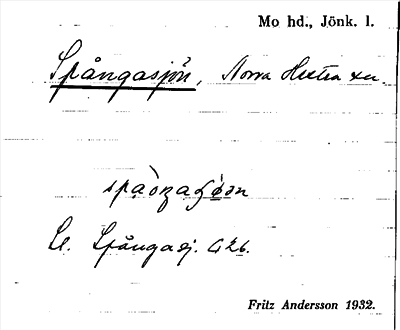 Mo hd., Jönk. l.
Spångasjön, Norra Hestra sn
Se. Spångasj. G2b.
Fritz Andersson 1932.